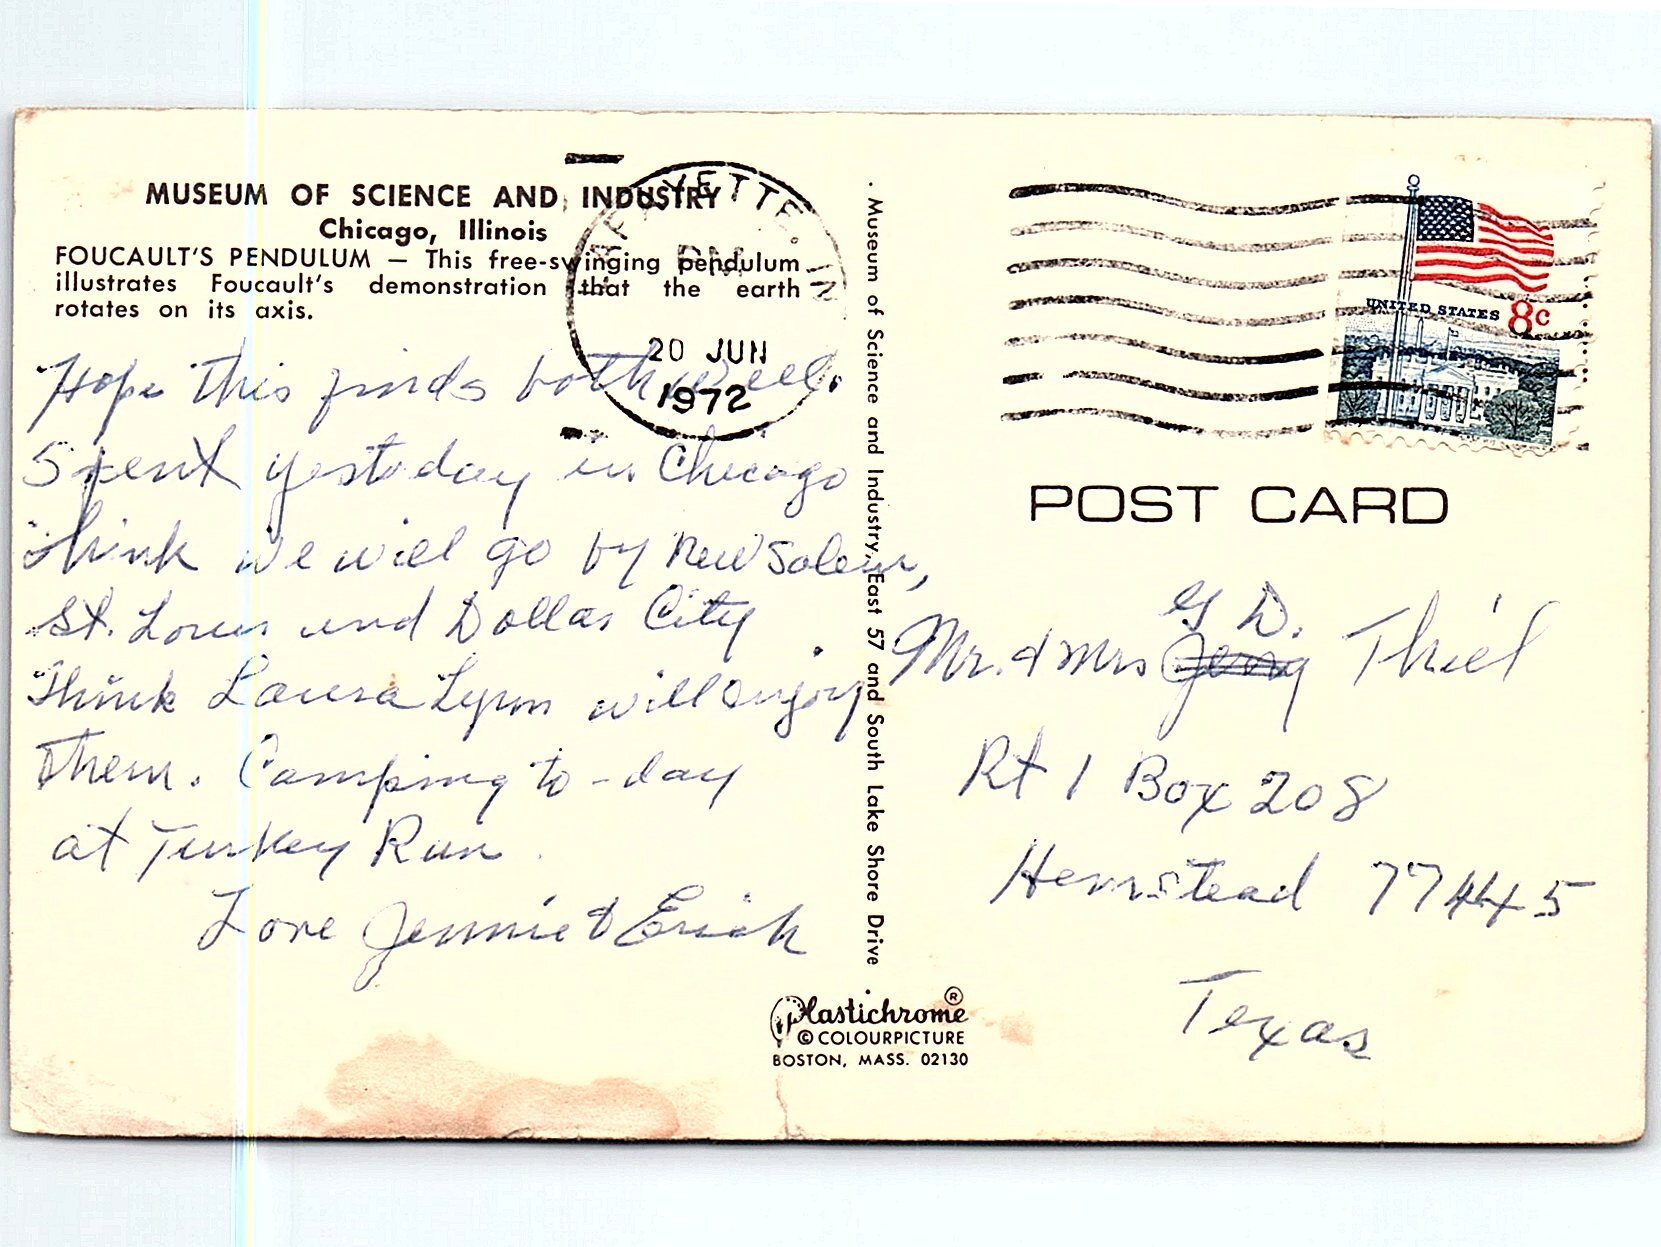 MUSEUM OF SCIENCE AND INDUSTRY
Chicago, Illinois
FOUCAULT'S PENDULUM — This free-swinging pendulum
illustrates Foucault's demonstration that the earth
rotates on its axis.
LAFAYETTE. IN
PM
20 JUN
1972
Hope this finds both well.
Spent yestoday in Chicago
think we will go by New Salem,
St. Louis and Dollas City
Think Laura Lynn will enjoy
them. Camping to-day
at Turkey Run
Love Jennie & Erich
Museum of Science and Industry, East 57 and South Lake Shore Drive
Plastichrome ®
© COLOURPICTURE
BOSTON, MASS. 02130
UNITED STATES 8c
POST CARD
G D.
Mr. & Mrs Jerry Thiel
Rt 1 Box 208
Hemstead 77445
Texas